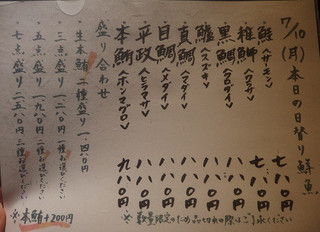 7/10(月)本日の日替り鮮魚
鮭〈サーモン〉 七八〇円
稚鰤〈ワラサ〉 七八〇円
黒鯛〈クロダイ〉 八八〇円
鱸〈スズキ〉 八八〇円
真鯛〈マダイ〉 八八〇円
目鯛〈メダイ〉 八八〇円
平政〈ヒラマサ〉 八八〇円
本鮪〈ホンマグロ〉 九八〇円
※数量限定のため品切れの際はご了承ください
盛り合わせ
生本鮪二種盛り 一、四八〇円
三点盛り 一、二八〇円 一種お選びください
五点盛り 一、九八〇円 二種お選びください
七点盛り 二、五八〇円 三種お選びください
※本鮪+200円